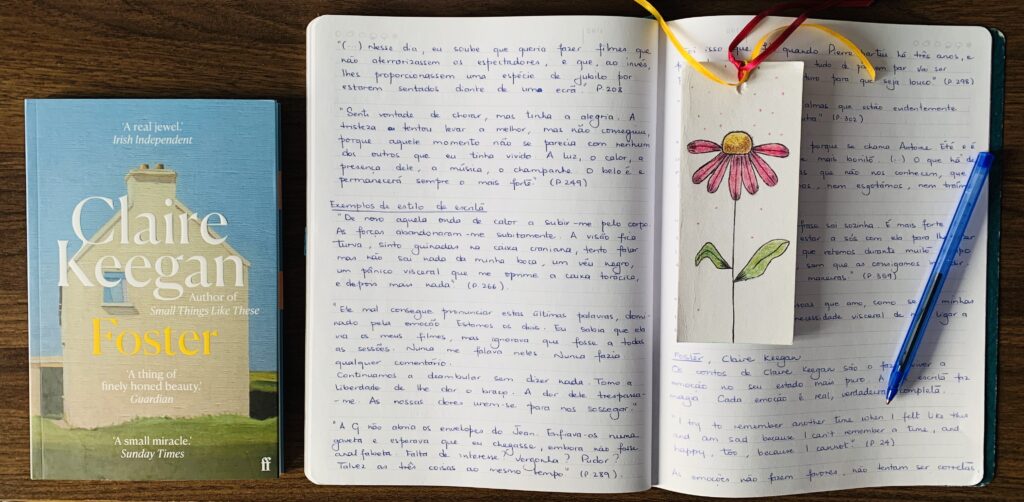 'A real jewel.'
Irish Independent
Claire
Keegan
Author of
Small Things Like These
Foster
'A thing of
finely honed beauty.'
Guardian
'A small miracle.'
Sunday Times
ff
"(...) Nesse dia, eu soube que queria fazer filmes que
não aterrorizassem os espectadores, e que, ao invés,
lhes proporcionassem uma espécie de júbilo por
estarem sentados diante de uma ecrã." P. 208
"Senti vontade de chorar, mas tinha a alegria. A
tristeza tentou levar a melhor, mas não conseguiu,
porque aquele momento não se parecia com nenhum
dos outros que eu tinha vivido. A luz, o calor, a
presença dele, a música, o champanhe. O belo é e
permanecerá sempre o mais forte" (P. 249)
Exemplos de estilo de escrita
"De novo aquela onda de calor a subir-me pelo corpo.
As forças abandonaram-me subitamente. A visão fica
turva, sinto guinadas na caixa craniana, tento falar
mas não sai nada da minha boca, um véu negro,
um pânico visceral que me oprime a caixa torácica,
e depois mais nada" (p. 266).
"Ele mal consegue pronunciar estas últimas palavras, domi-
nado pela emoção. Estamos os dois. Eu sabia que ela
via os meus filmes, mas ignorava que fosse a todas
as sessões. Nunca me falava neles. Nunca fazia
qualquer comentário.
Continuamos a deambular sem dizer nada. Tomo a
liberdade de lhe dar o braço. A dor dele trespassa-
-me. As nossas dores unem-se para nos sossegar."
"A G não abria os envelopes do Jean. Enfiava-os numa
gaveta e esperava que eu chegasse, embora não fosse
analfabeta. Falta de interesse? Vergonha? Pudor?
Talvez as três coisas ao mesmo tempo" (P. 289).
isso que quando Pierre há três anos, e
tudo de par vai ser
para que seja louco" (P. 298)
almas que estão evidentemente
(P. 302)
porque se chama Antoine. Eté é
mais bonito. (...) O que há de
que não nos conhecem, que
nem esgotámos, nem
frase sai sozinha. É mais forte
estar a sós com ela para lhe
que retomos durante muito
sem que as consigamos
maneiras" (P. 359)
que amo, como minhas
necessidade visceral de ligar a
Foster, Claire Keegan
Os contos de Claire Keegan são o
emoção no seu estado mais puro. A escrita faz
magia. Cada emoção é real, verdadeira, completa.
"I try to remember another time when I felt like this
and am sad because I can't remember a time, and
happy, too, because I cannot." (P. 24)
As emoções não fazem favores, não tentam ser corretas,